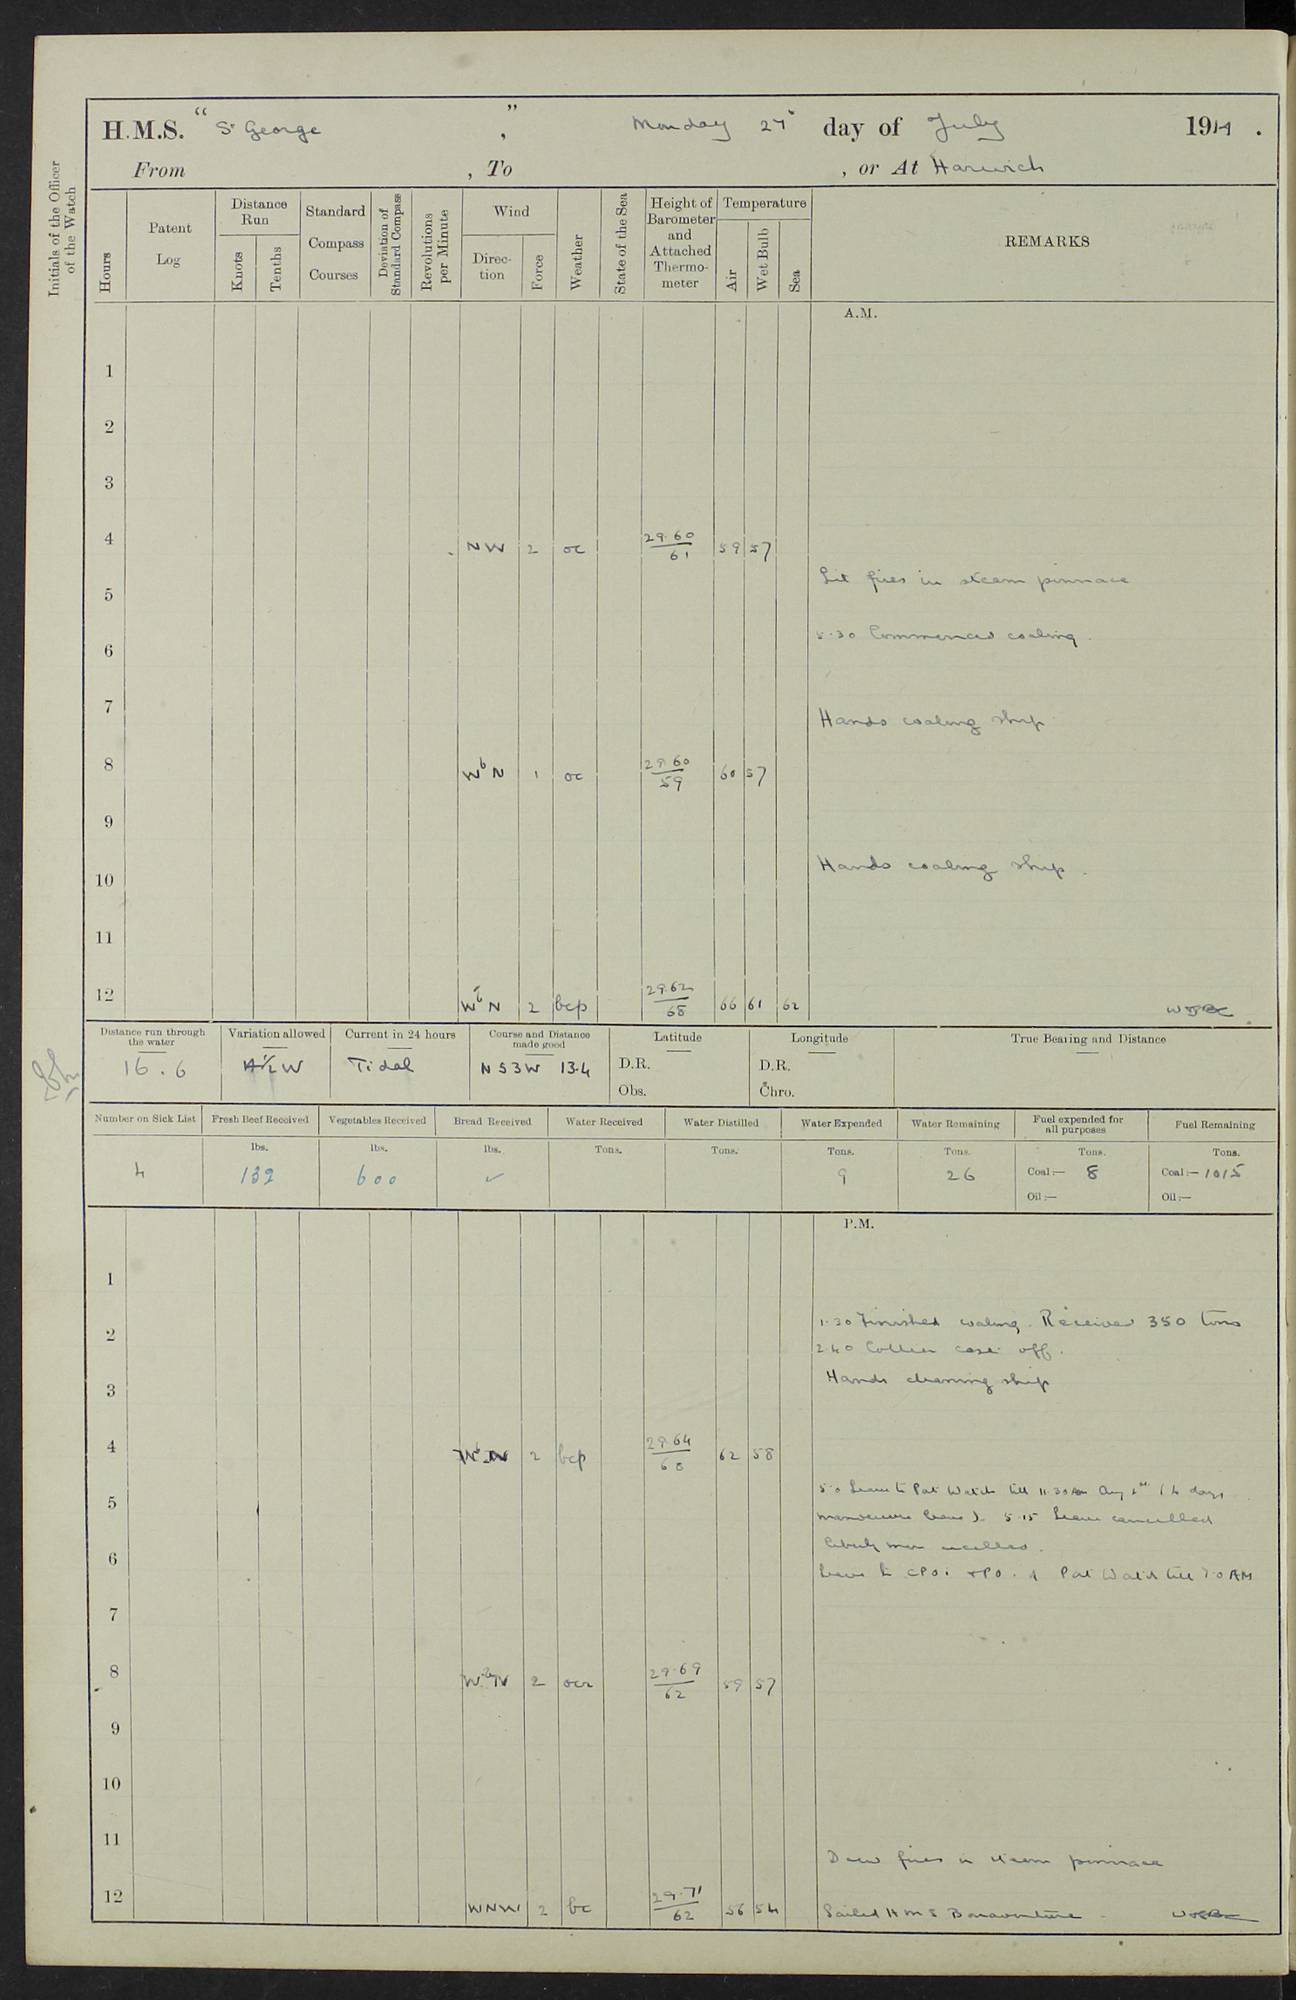 H.M.S. "St George", Monday 27th day of July 1914.
From , To , or At Harwich
Initials of the Officer of the Watch
Hours
Patent Log
Distance Run
Knots
Tenths
Standard Compass Courses
Deviation of Standard Compass
Revolutions per Minute
Wind
Direction
Force
Weather
State of the Sea
Height of Barometer and Attached Thermometer
Temperature
Air
Wet Bulb
Sea
REMARKS
A.M.
1
2
3
4 NW 2 oc 29.60/61 59 57
Lit fires in steam pinnace
5
5.30 Commenced coaling.
6
7
Hands coaling ship
8 WbN 1 oc 29.60/59 60 57
9
Hands coaling ship.
10
11
12 WbN 2 bcp 29.62/65 66 61 62
Distance run through the water
16.6
Variation allowed
Current in 24 hours
Tidal
Course and Distance made good
N 53 W 13.4
Latitude
D.R.
Obs.
Longitude
D.R.
Chro.
True Bearing and Distance
Number on Sick List
4
Fresh Beef Received
lbs.
132
Vegetables Received
lbs.
600
Bread Received
lbs.
✓
Water Received
Tons.
Water Distilled
Tons.
Water Expended
Tons.
9
Water Remaining
Tons.
26
Fuel expended for all purposes
Tons.
Coal:— 8
Oil:—
Fuel Remaining
Tons.
Coal:— 1015
Oil:—
P.M.
1
1.30 Finished coaling. Received 350 tons
2
2.40 Collier cast off.
3 Hands cleaning ship
4 WbN 2 bcp 29.64/60 62 58
5.0 Leave to Port Watch till 11.30 AM Aug 1st (4 days
5
manoeuvre leave). 5.15 Leave cancelled
liberty men recalled.
6
Leave to CPO's & PO's of Port Watch till 7.0 AM
7
8 WbN 2 ocr 29.69/62 59 57
9
10
11
Drew fires in steam pinnace
12 WNW 2 bc 29.71/62 56 54 Sailed HMS Bonaventure.